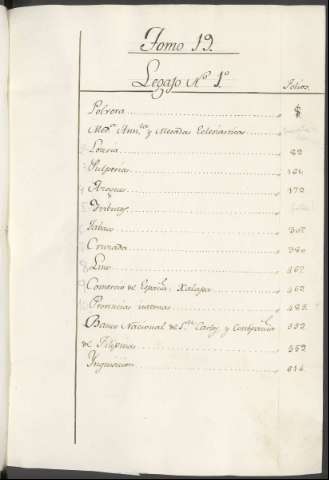 Tomo 19.
Legajo Nº 1º
Folios.
Polvora
Med.ˢ Ann.ᵗᵃˢ y Mesadas Eclesiasticas
Lotería 82
Pulperias
Azogues 170
Tributos
Tabaco
Cruzada 380
Lino
Comercio de España: Xalapa 462
Provincias internas 483
Banco Nacional de S.ⁿ Carlos y Compañia 552
de Filipinas 559
Inquisicion 614